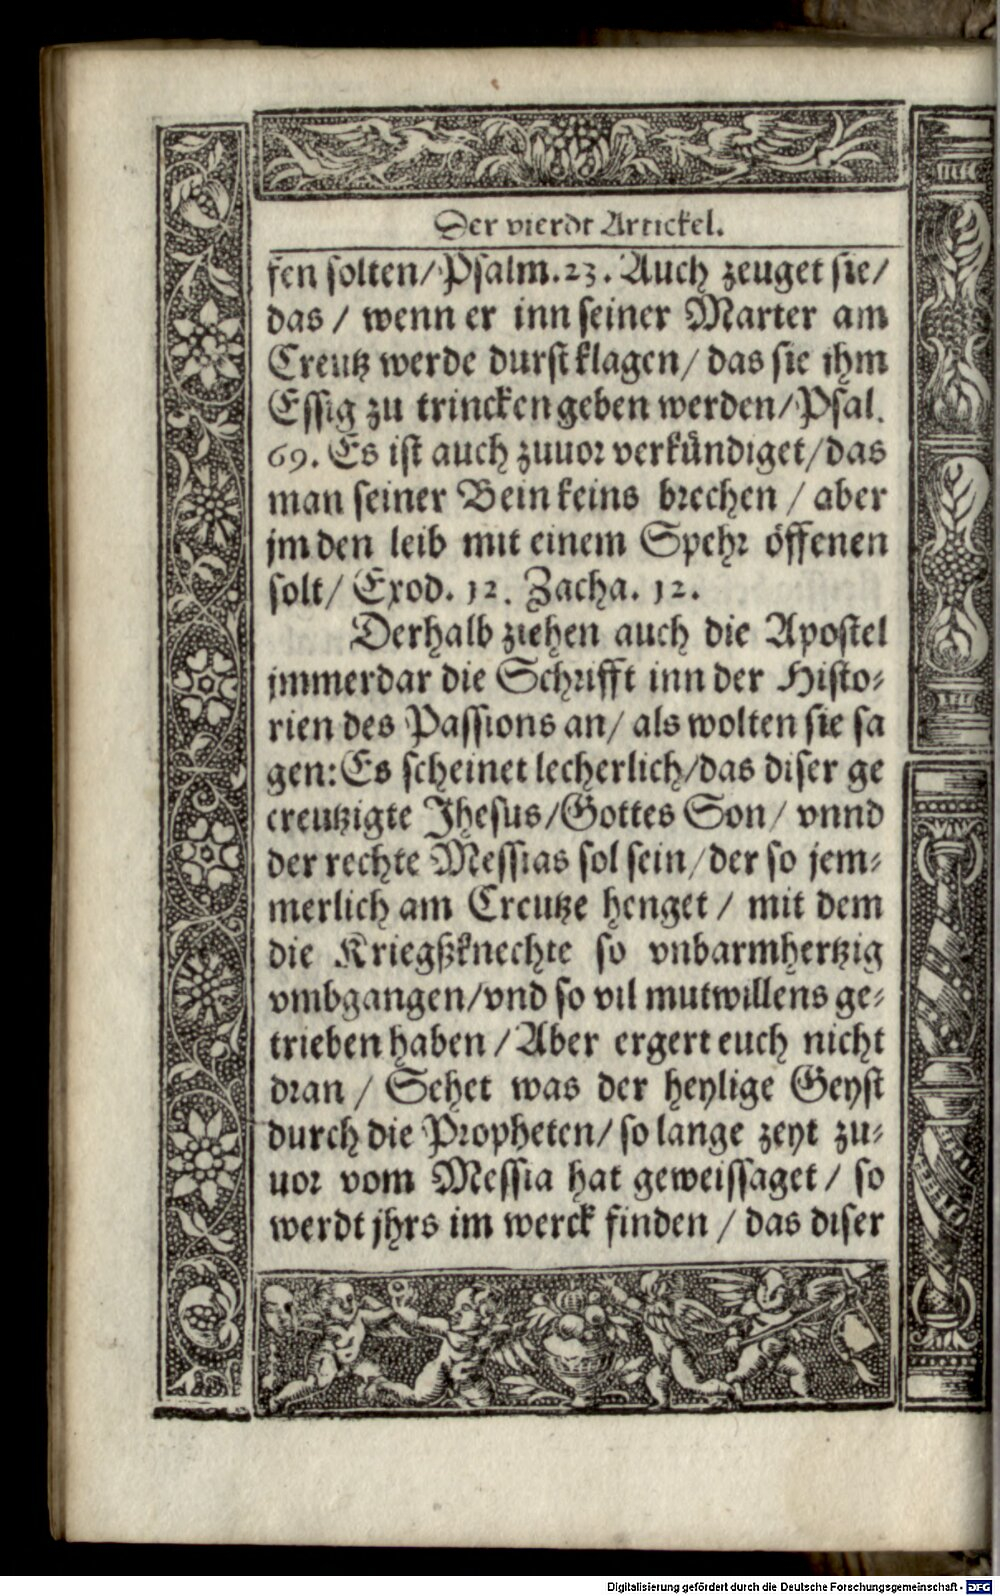 Der vierdt Artickel.
fen solten/ Psalm.23. Auch zeuget sie/
das / wenn er inn seiner Marter am
Creutz werde durst klagen/ das sie ihm
Essig zu trincken geben werden/ Psal.
69. Es ist auch zuuor verkündiget/ das
man seiner Bein keins brechen / aber
jm den leib mit einem Spehr öffenen
solt/ Exod. 12. Zacha. 12.
Derhalb ziehen auch die Apostel
jmmerdar die Schrifft inn der Histo-
rien des Passions an/ als wolten sie sa
gen: Es scheinet lecherlich/ das diser ge
creutzigte Jhesus/ Gottes Son/ vnnd
der rechte Messias sol sein/ der so jem-
merlich am Creutze henget / mit dem
die Kriegßknechte so vnbarmhertzig
vmbgangen/ vnd so vil mutwillens ge-
trieben haben / Aber ergert euch nicht
dran / Sehet was der heylige Geyst
durch die Propheten/ so lange zeyt zu-
uor vom Messia hat geweissaget / so
werdt jhrs im werck finden / das diser
Digitalisierung gefördert durch die Deutsche Forschungsgemeinschaft - DFG